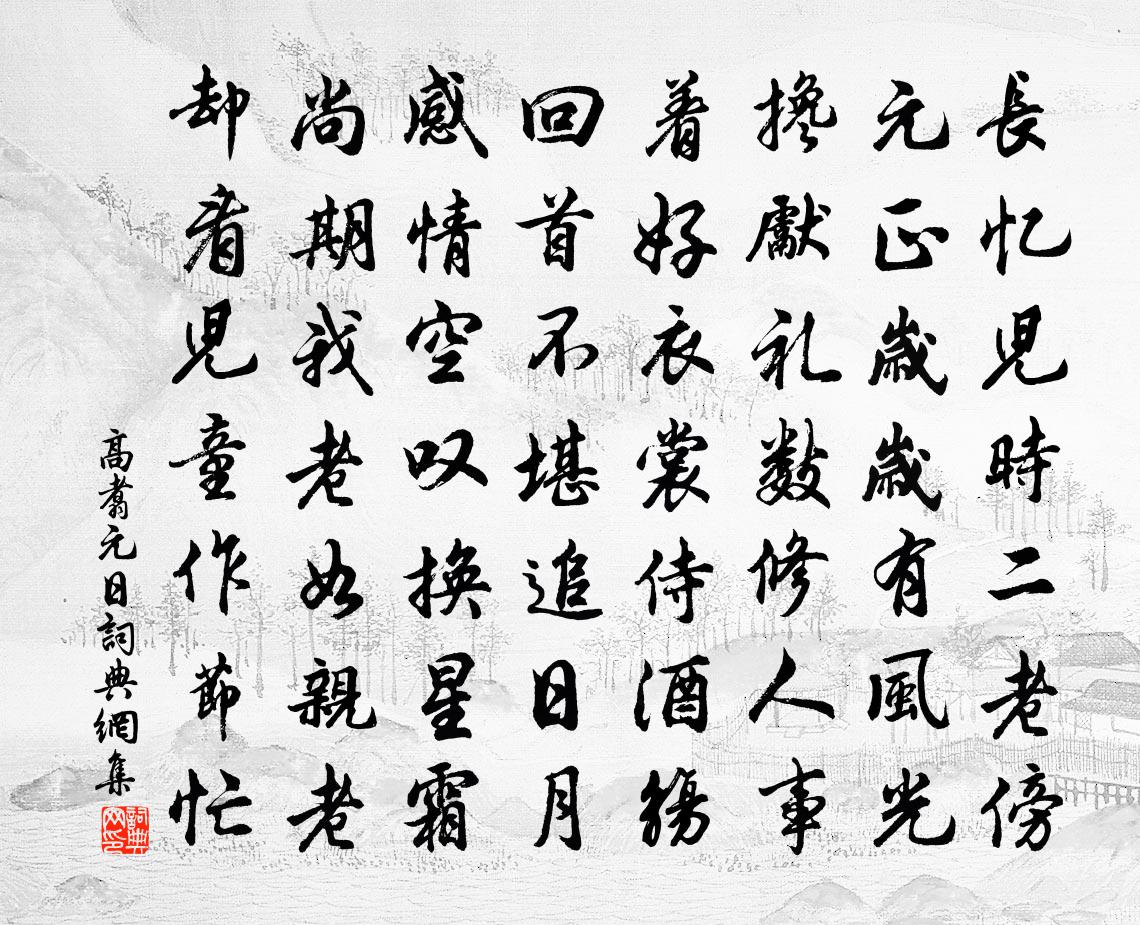 長忆児時二老傍
元正歳歳有風光
搀獻礼数修人事
着好衣裳侍酒觴
回首不堪追日月
感情空叹換星霜
尚期我老如親老
却看児童作節忙
高翥元日詞典網集
詞典网印